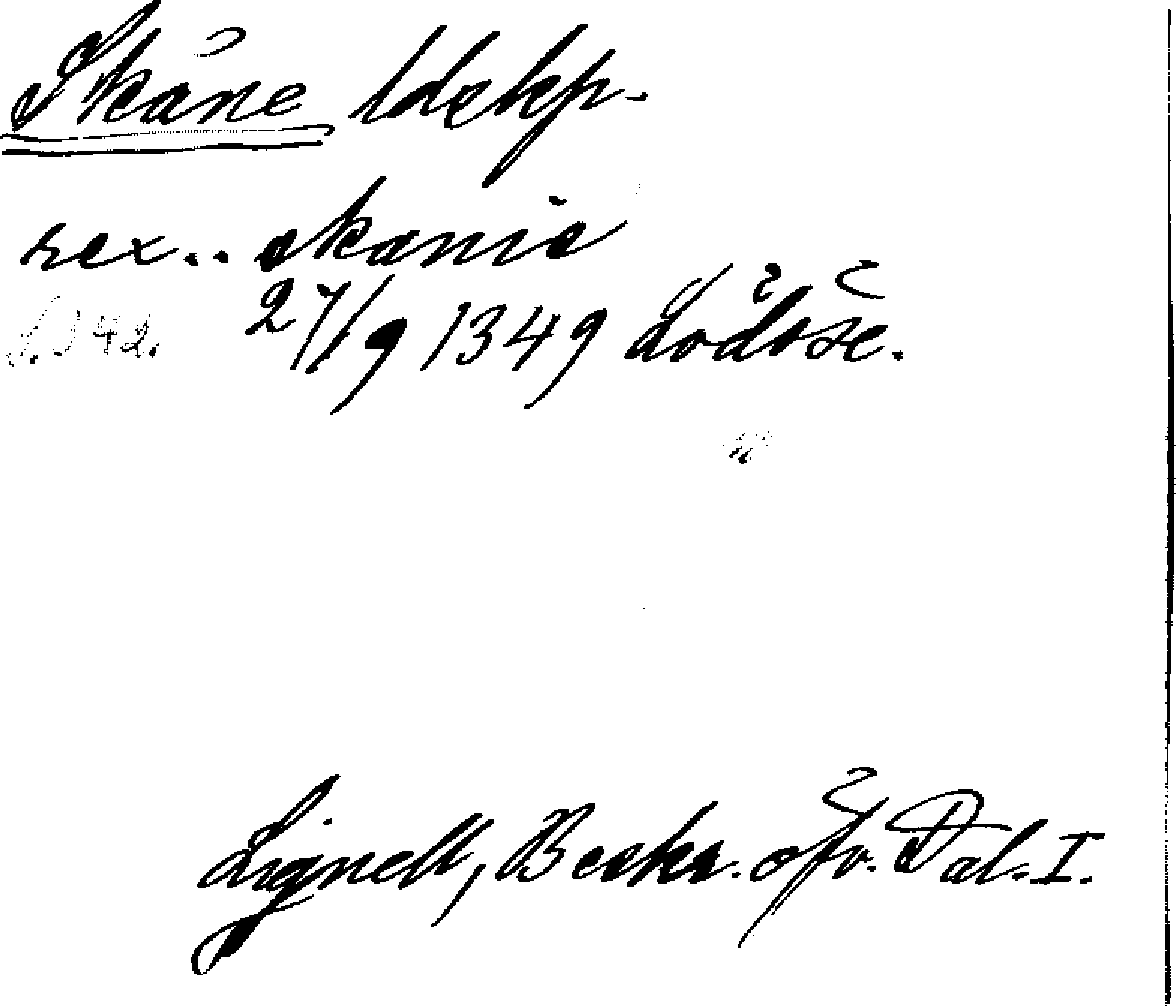 Skåne ldskp.
rex.. skanie
s. 342. 27/9 1349 Lödöse.
Lignell, Beskr. öfv. Dal. I.